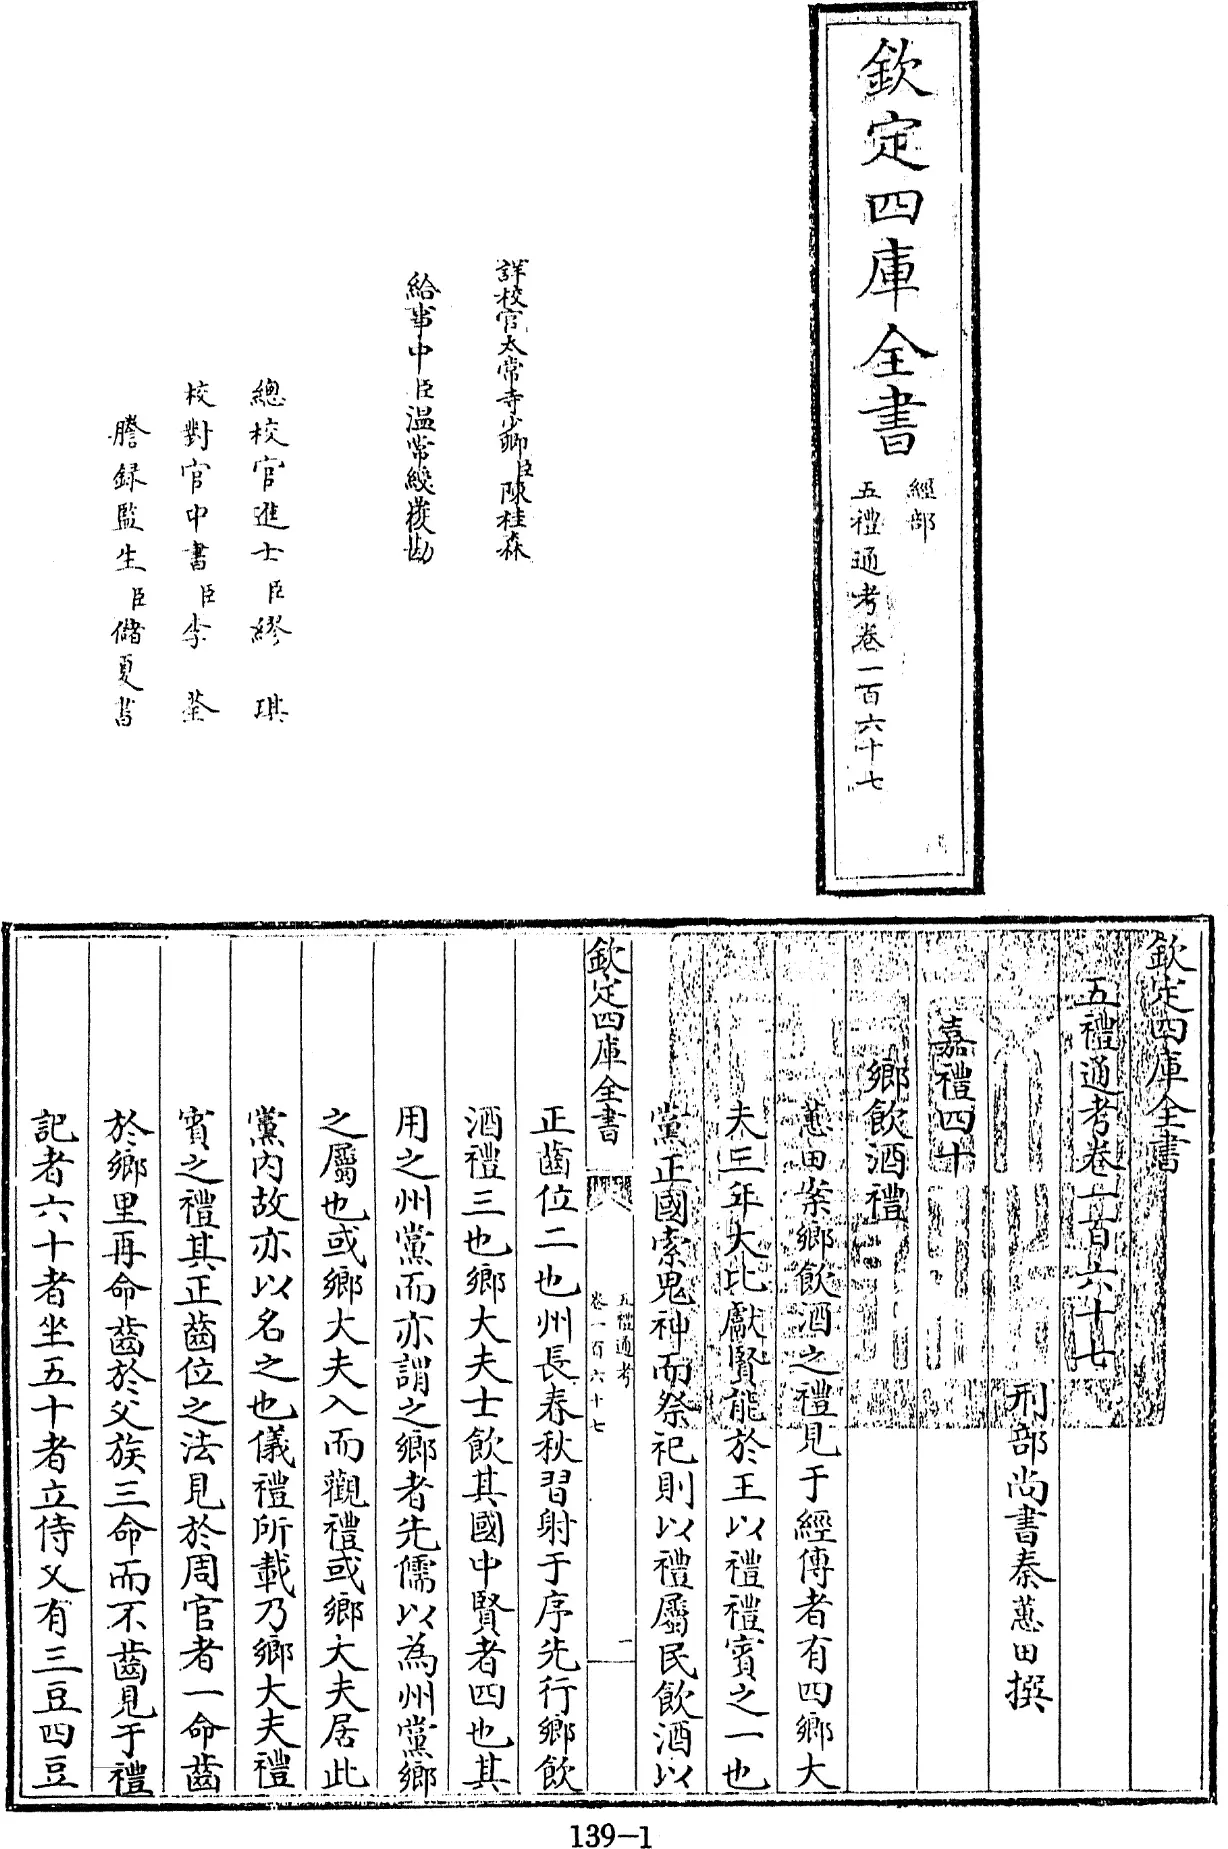 欽定四庫全書
經部
五禮通考卷一百六十七
詳校官太常寺少卿臣陳桂森
給事中臣温常綬覆勘
總校官進士臣繆琪
校對官中書臣李荃
謄録監生臣儲夏書
欽定四庫全書
五禮通考卷一百六十七
刑部尚書秦蕙田撰
嘉禮四十
鄉飲酒禮
蕙田案鄉飲酒之禮見于經傳者有四鄉大
夫三年大比獻賢能於王以禮禮賓之一也
黨正國索鬼神而祭祀則以禮屬民飲酒以
欽定四庫全書
五禮通考
卷一百六十七
一
正齒位二也州長春秋習射于序先行鄉飲
酒禮三也鄉大夫士飲其國中賢者四也其
用之州黨而亦謂之鄉者先儒以為州黨鄉
之屬也或鄉大夫入而觀禮或鄉大夫居此
黨內故亦以名之也儀禮所載乃鄉大夫禮
賓之禮其正齒位之法見於周官者一命齒
於鄉里再命齒於父族三命而不齒見于禮
記者六十者坐五十者立侍又有三豆四豆
139-1